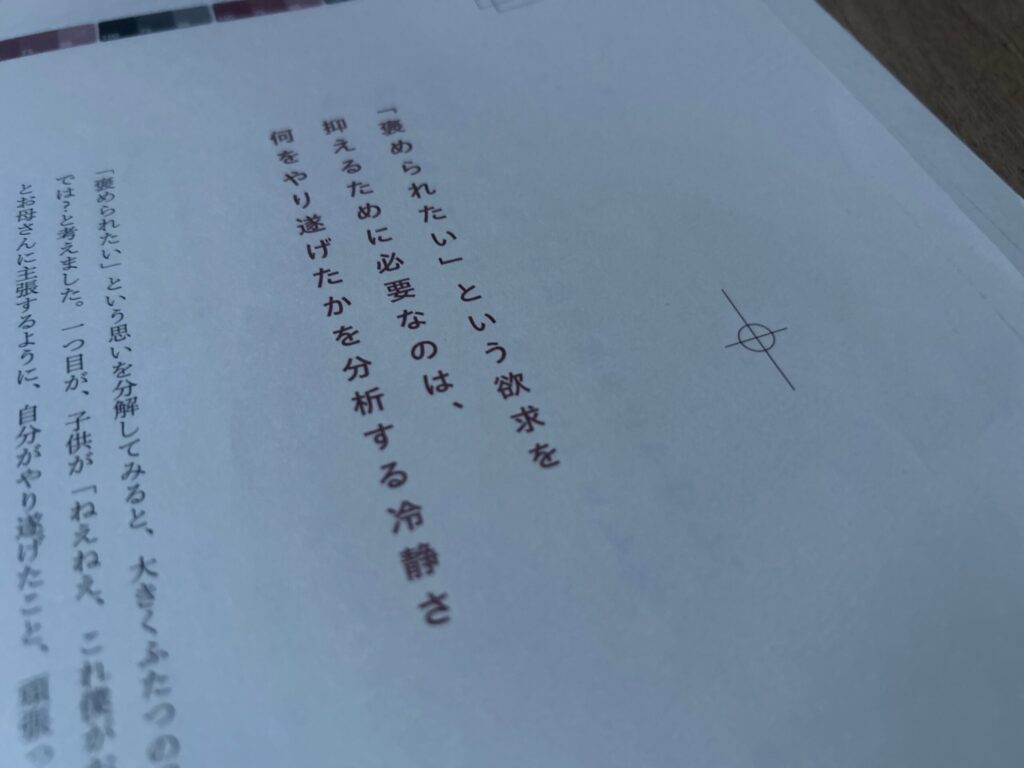 「褒められたい」という欲求を
抑えるために必要なのは、
何をやり遂げたかを分析する冷静さ
「褒められたい」という思いを分解してみると、大きくふたつの
では?と考えました。一つ目が、子供が「ねえねえ、これ僕が
とお母さんに主張するように、自分がやり遂げたこと、頑張っ